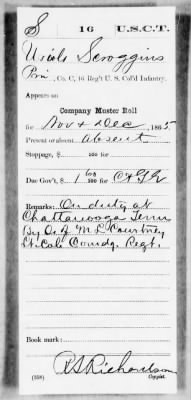 S | 16 | U.S.C.T.
Scroggins
Co. C, 16 Reg't U. S. Col'd Infantry.
Appears on
Company Muster Roll
for Nov & Dec, 1865
Present or absent Absent
Stoppage, $ 100 for
Due Gov't, $ 1 60/100 for
Remarks: On duty at
Chattanooga Tenn
By O. of M. L. Courtney
Lt Col Comdg Regt.
Book mark:
R S Richardson
(358) Copyist.